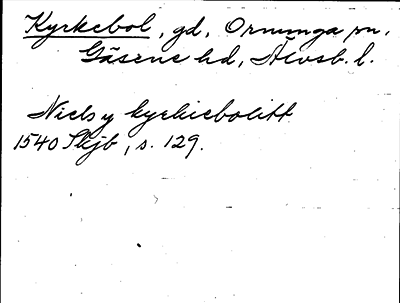 Kyrkebol, gd, Ornunga sn,
Gäsene hd, Älvsb. l.
Niels y kyrkiebolitt
1540 Skjb, s. 129.